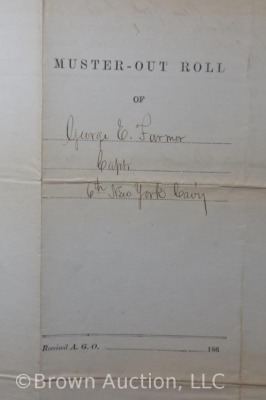 MUSTER-OUT ROLL
OF
George E. Farmer
Capt.
6th New York Cav'y
Received A. G. O. 186
©Brown Auction, LLC